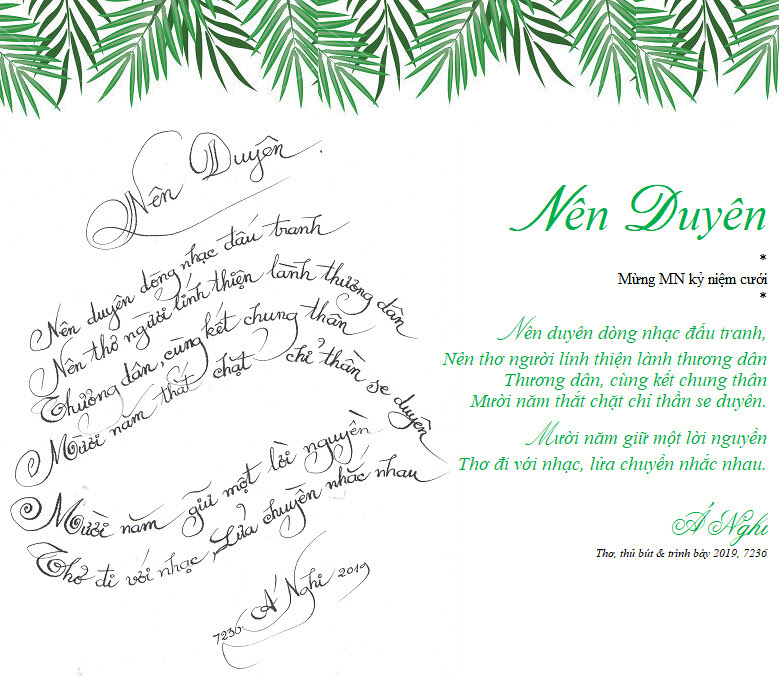 Nên Duyên.
Nên duyên dòng nhạc đấu tranh
Nên thơ người lính thiện lành thương dân
Thương dân, cùng kết chung thân
Mười năm thắt chặt chỉ thần se duyên
Mười năm giữ một lời nguyền
Thơ đi với nhạc, Lửa chuyền nhắc nhau
7236 Á Nghi 2019
Nên Duyên
*
Mừng MN kỷ niệm cưới
*
Nên duyên dòng nhạc đấu tranh,
Nên thơ người lính thiện lành thương dân
Thương dân, cùng kết chung thân
Mười năm thắt chặt chỉ thần se duyên.
Mười năm giữ một lời nguyền
Thơ đi với nhạc, lửa chuyền nhắc nhau.
Á Nghi
Thơ, thủ bút & trình bày 2019, 7236